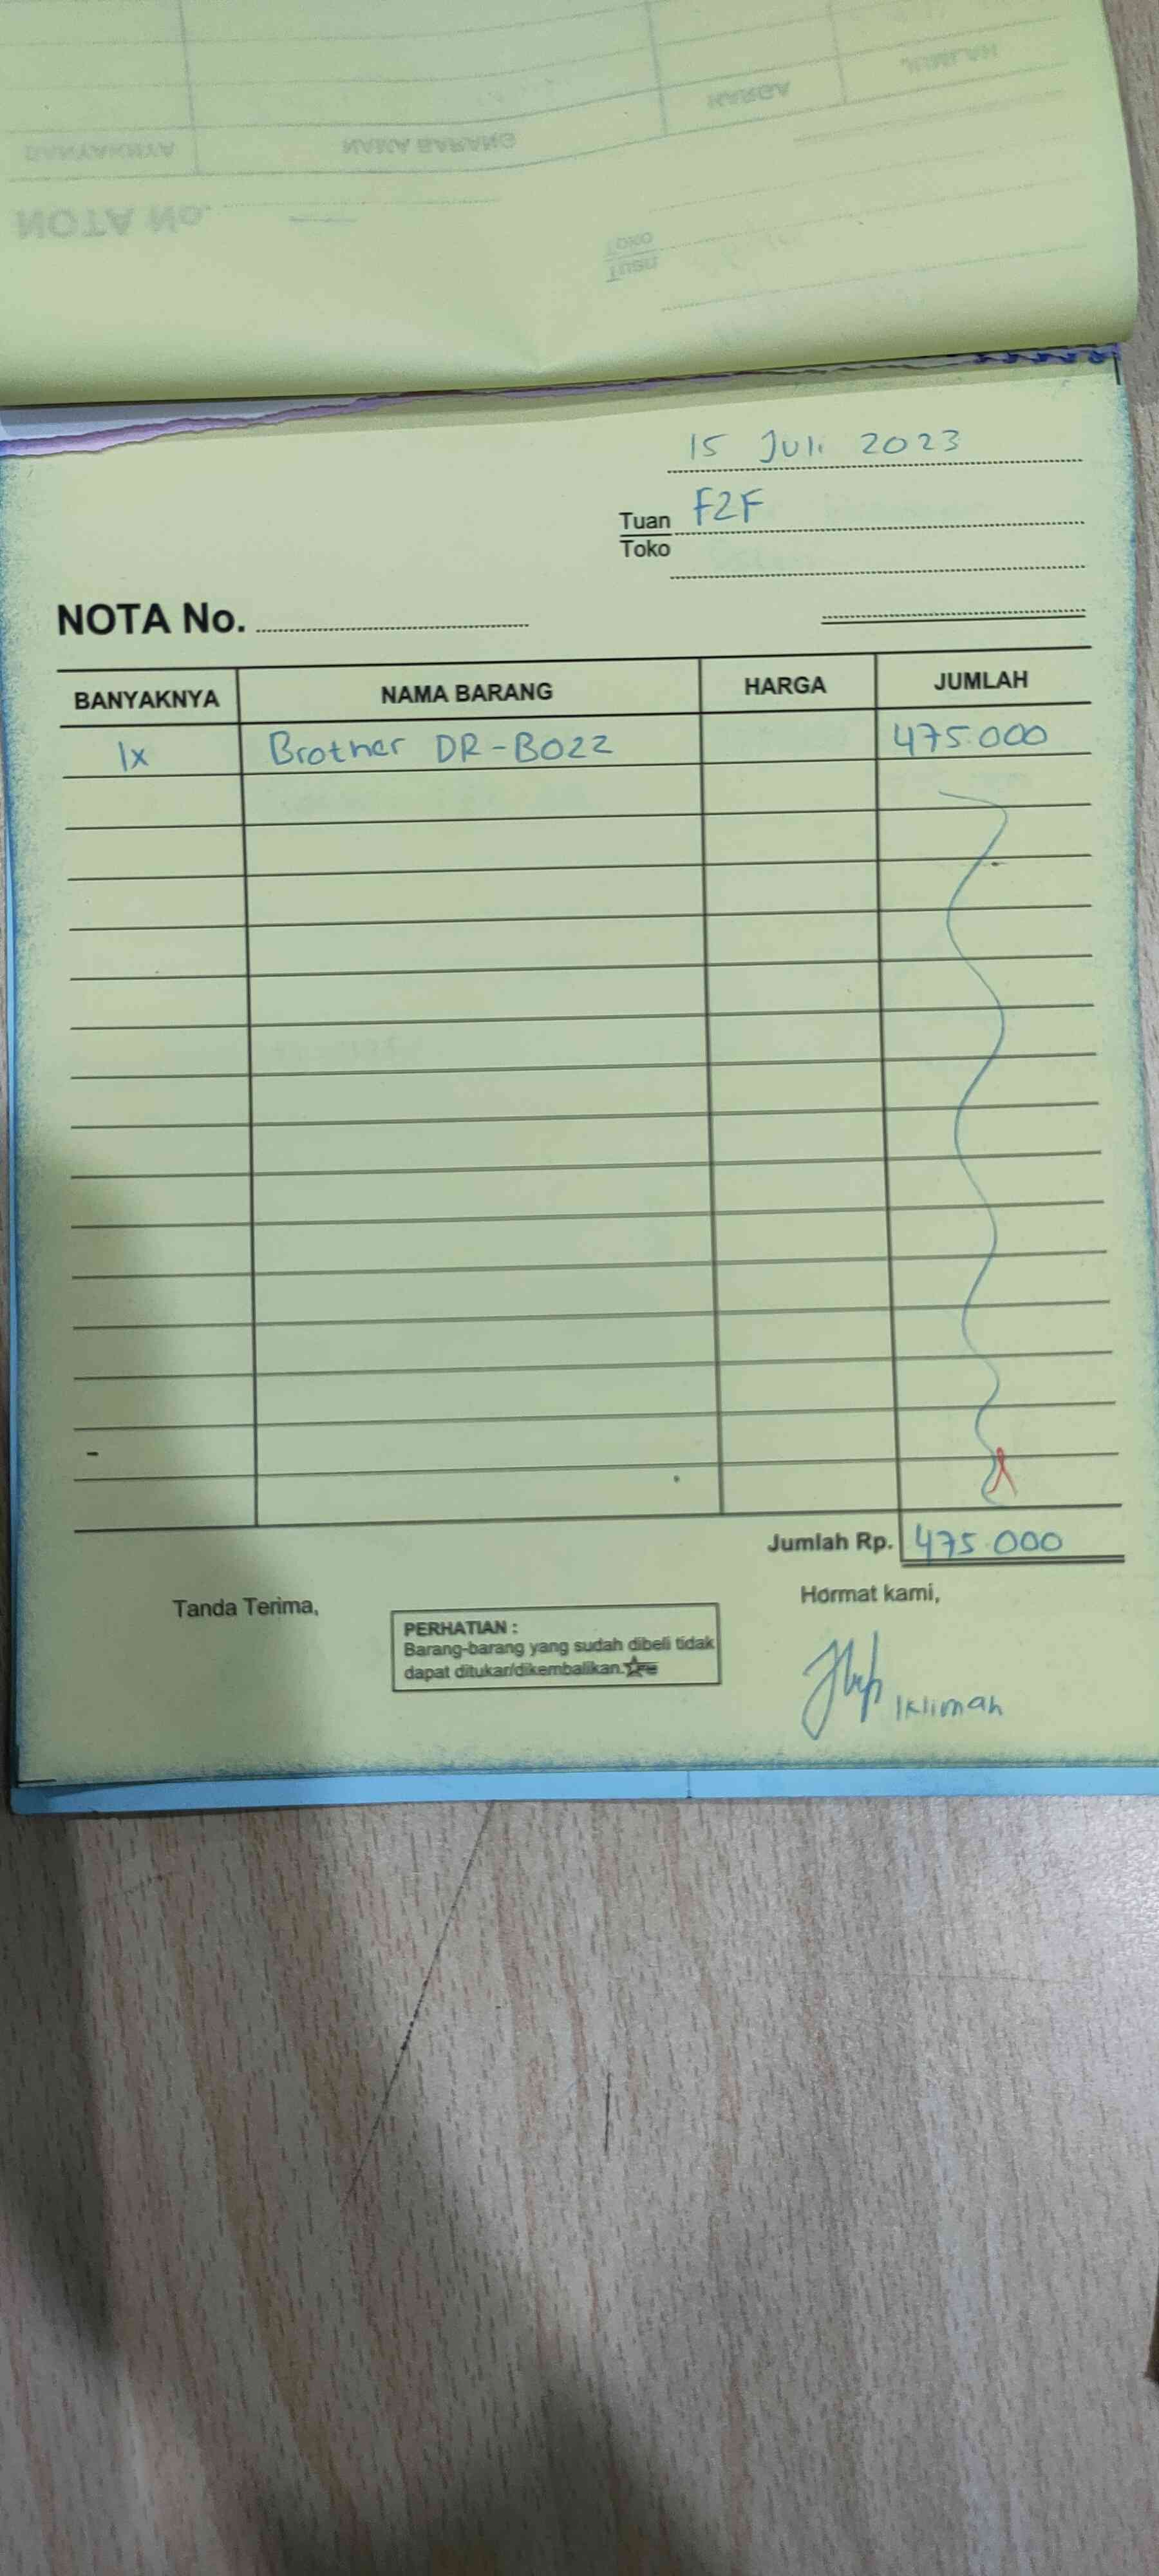 JUMLAH
HARGA
NAMA BARANG
BANYAKNYA
NOTA No.
Toko
Tuan
15 Juli 2023
Tuan F2F
Toko
NOTA No.
BANYAKNYA NAMA BARANG HARGA JUMLAH
1x Brother DR-B022 475.000
Jumlah Rp. 475.000
Tanda Terima,
Hormat kami,
PERHATIAN :
Barang-barang yang sudah dibeli tidak
dapat ditukar/dikembalikan.
Iklimah